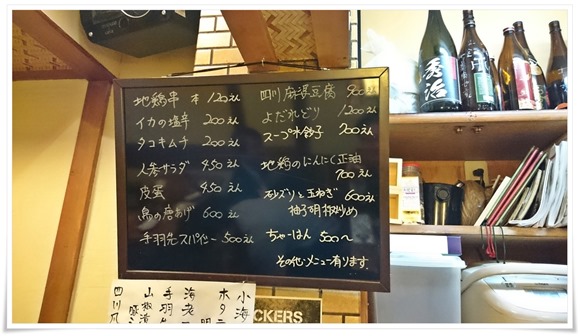 地鶏串 本 120えん
イカの塩辛 200えん
タコキムチ 200えん
人参サラダ 450えん
皮蛋 450えん
鳥の唐あげ 600えん
手羽先スパイシー 500えん
四川麻婆豆腐 900えん
よだれどり 1200えん
スープ水餃子 700えん
地鶏のにんにく正油
700えん
砂ズリと玉ねぎ 600えん
柚子胡椒炒め
ちゃーはん 500〜
その他・メニュー有ります。
小海
ホタ
海老
手羽
山椒
四川風
CKERS